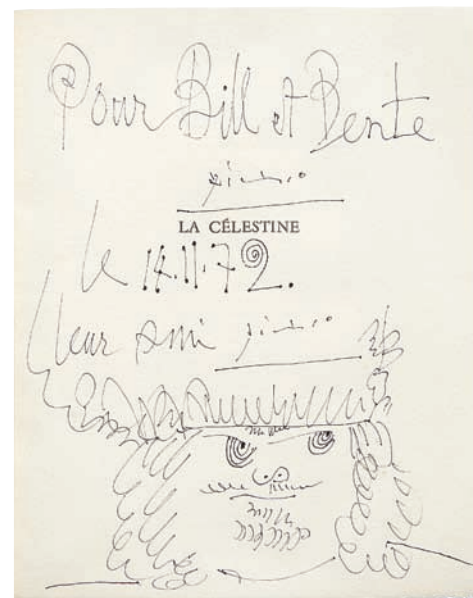 Pour Bill et Bente
Picasso
LA CÉLESTINE
le 14.11.72.
leur ami Picasso